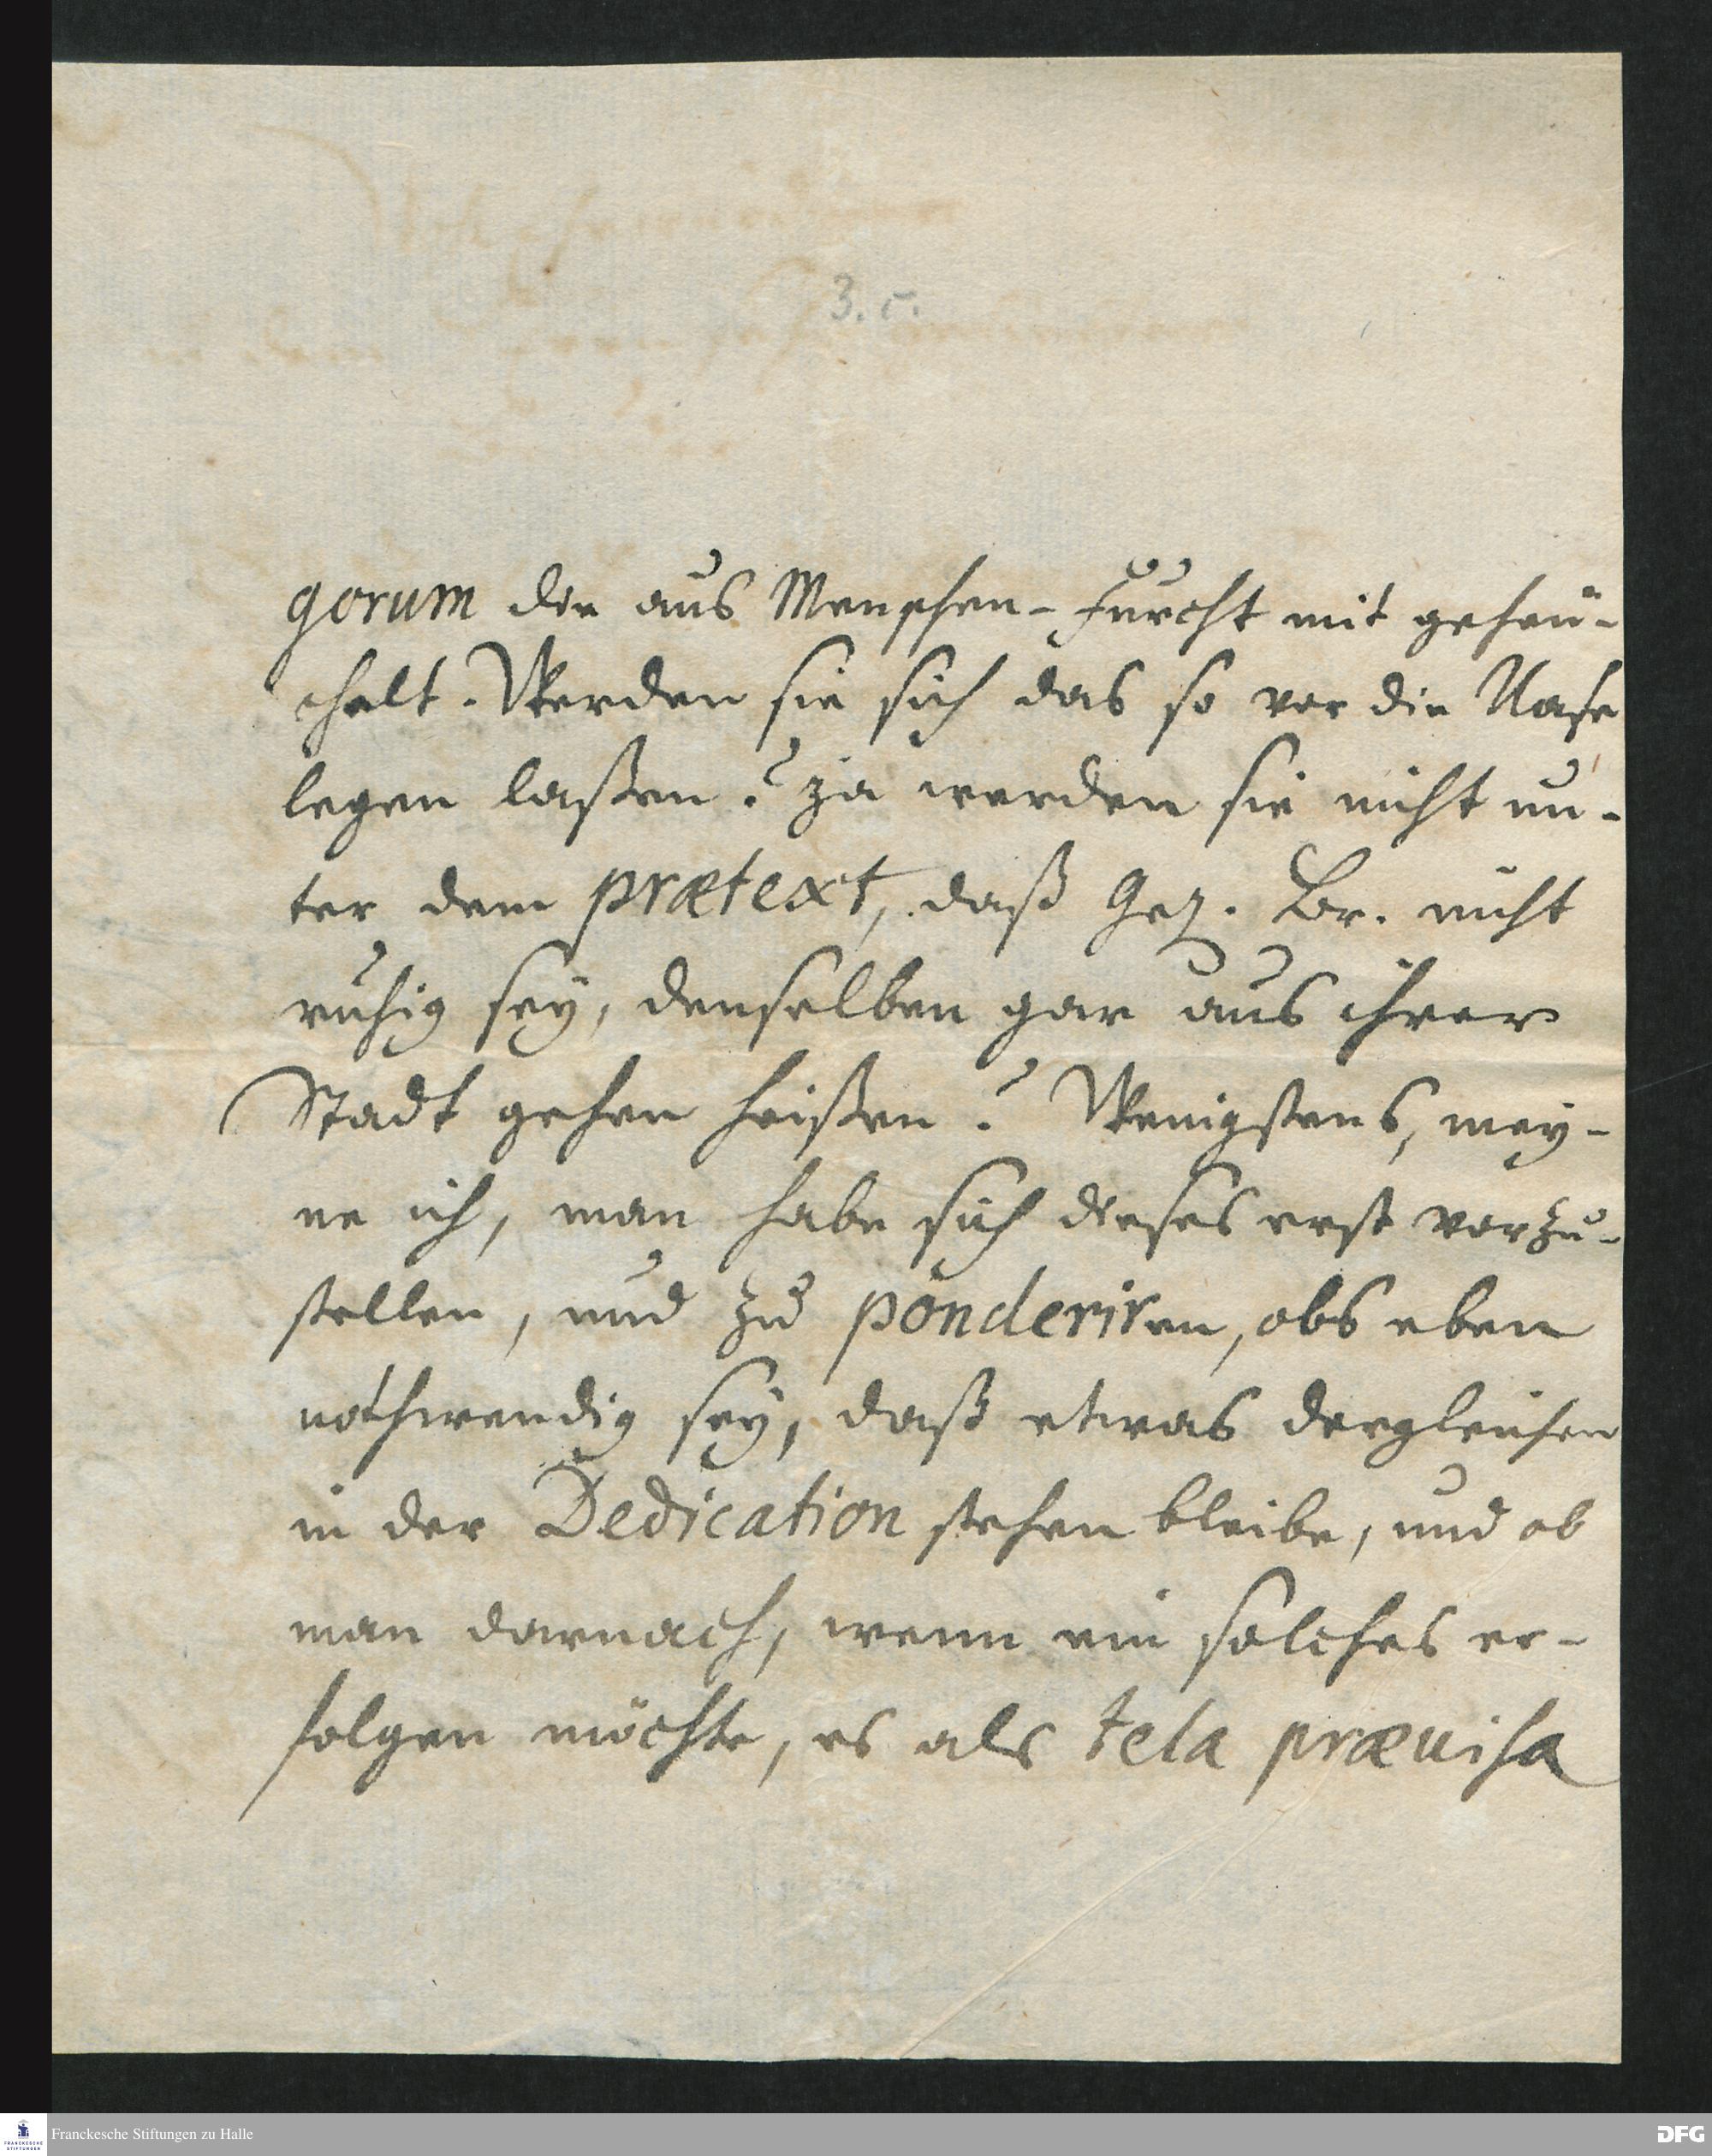 3. c.
gorum die aus Menschen-Furcht mit geheu-
chelt. Werden sie sich das so vor die Nase
legen laßen? ja werden sie nicht un-
ter dem prætext, daß Br. nicht
ruhig sey, denselben gar aus ihrer
Stadt gehen heißen? Wenigstens, mey-
ne ich, man habe sich dieses erst vorzu-
stellen, und zu ponderiren, obs eben
nothwendig sey, daß etwas dergleichen
in der Dedication stehen bleibe, und ob
man darnach, wenn ein solches er-
folgen möchte, es als tela præuisa
FRANCKESCHE STIFTUNGEN
Franckesche Stiftungen zu Halle
DFG